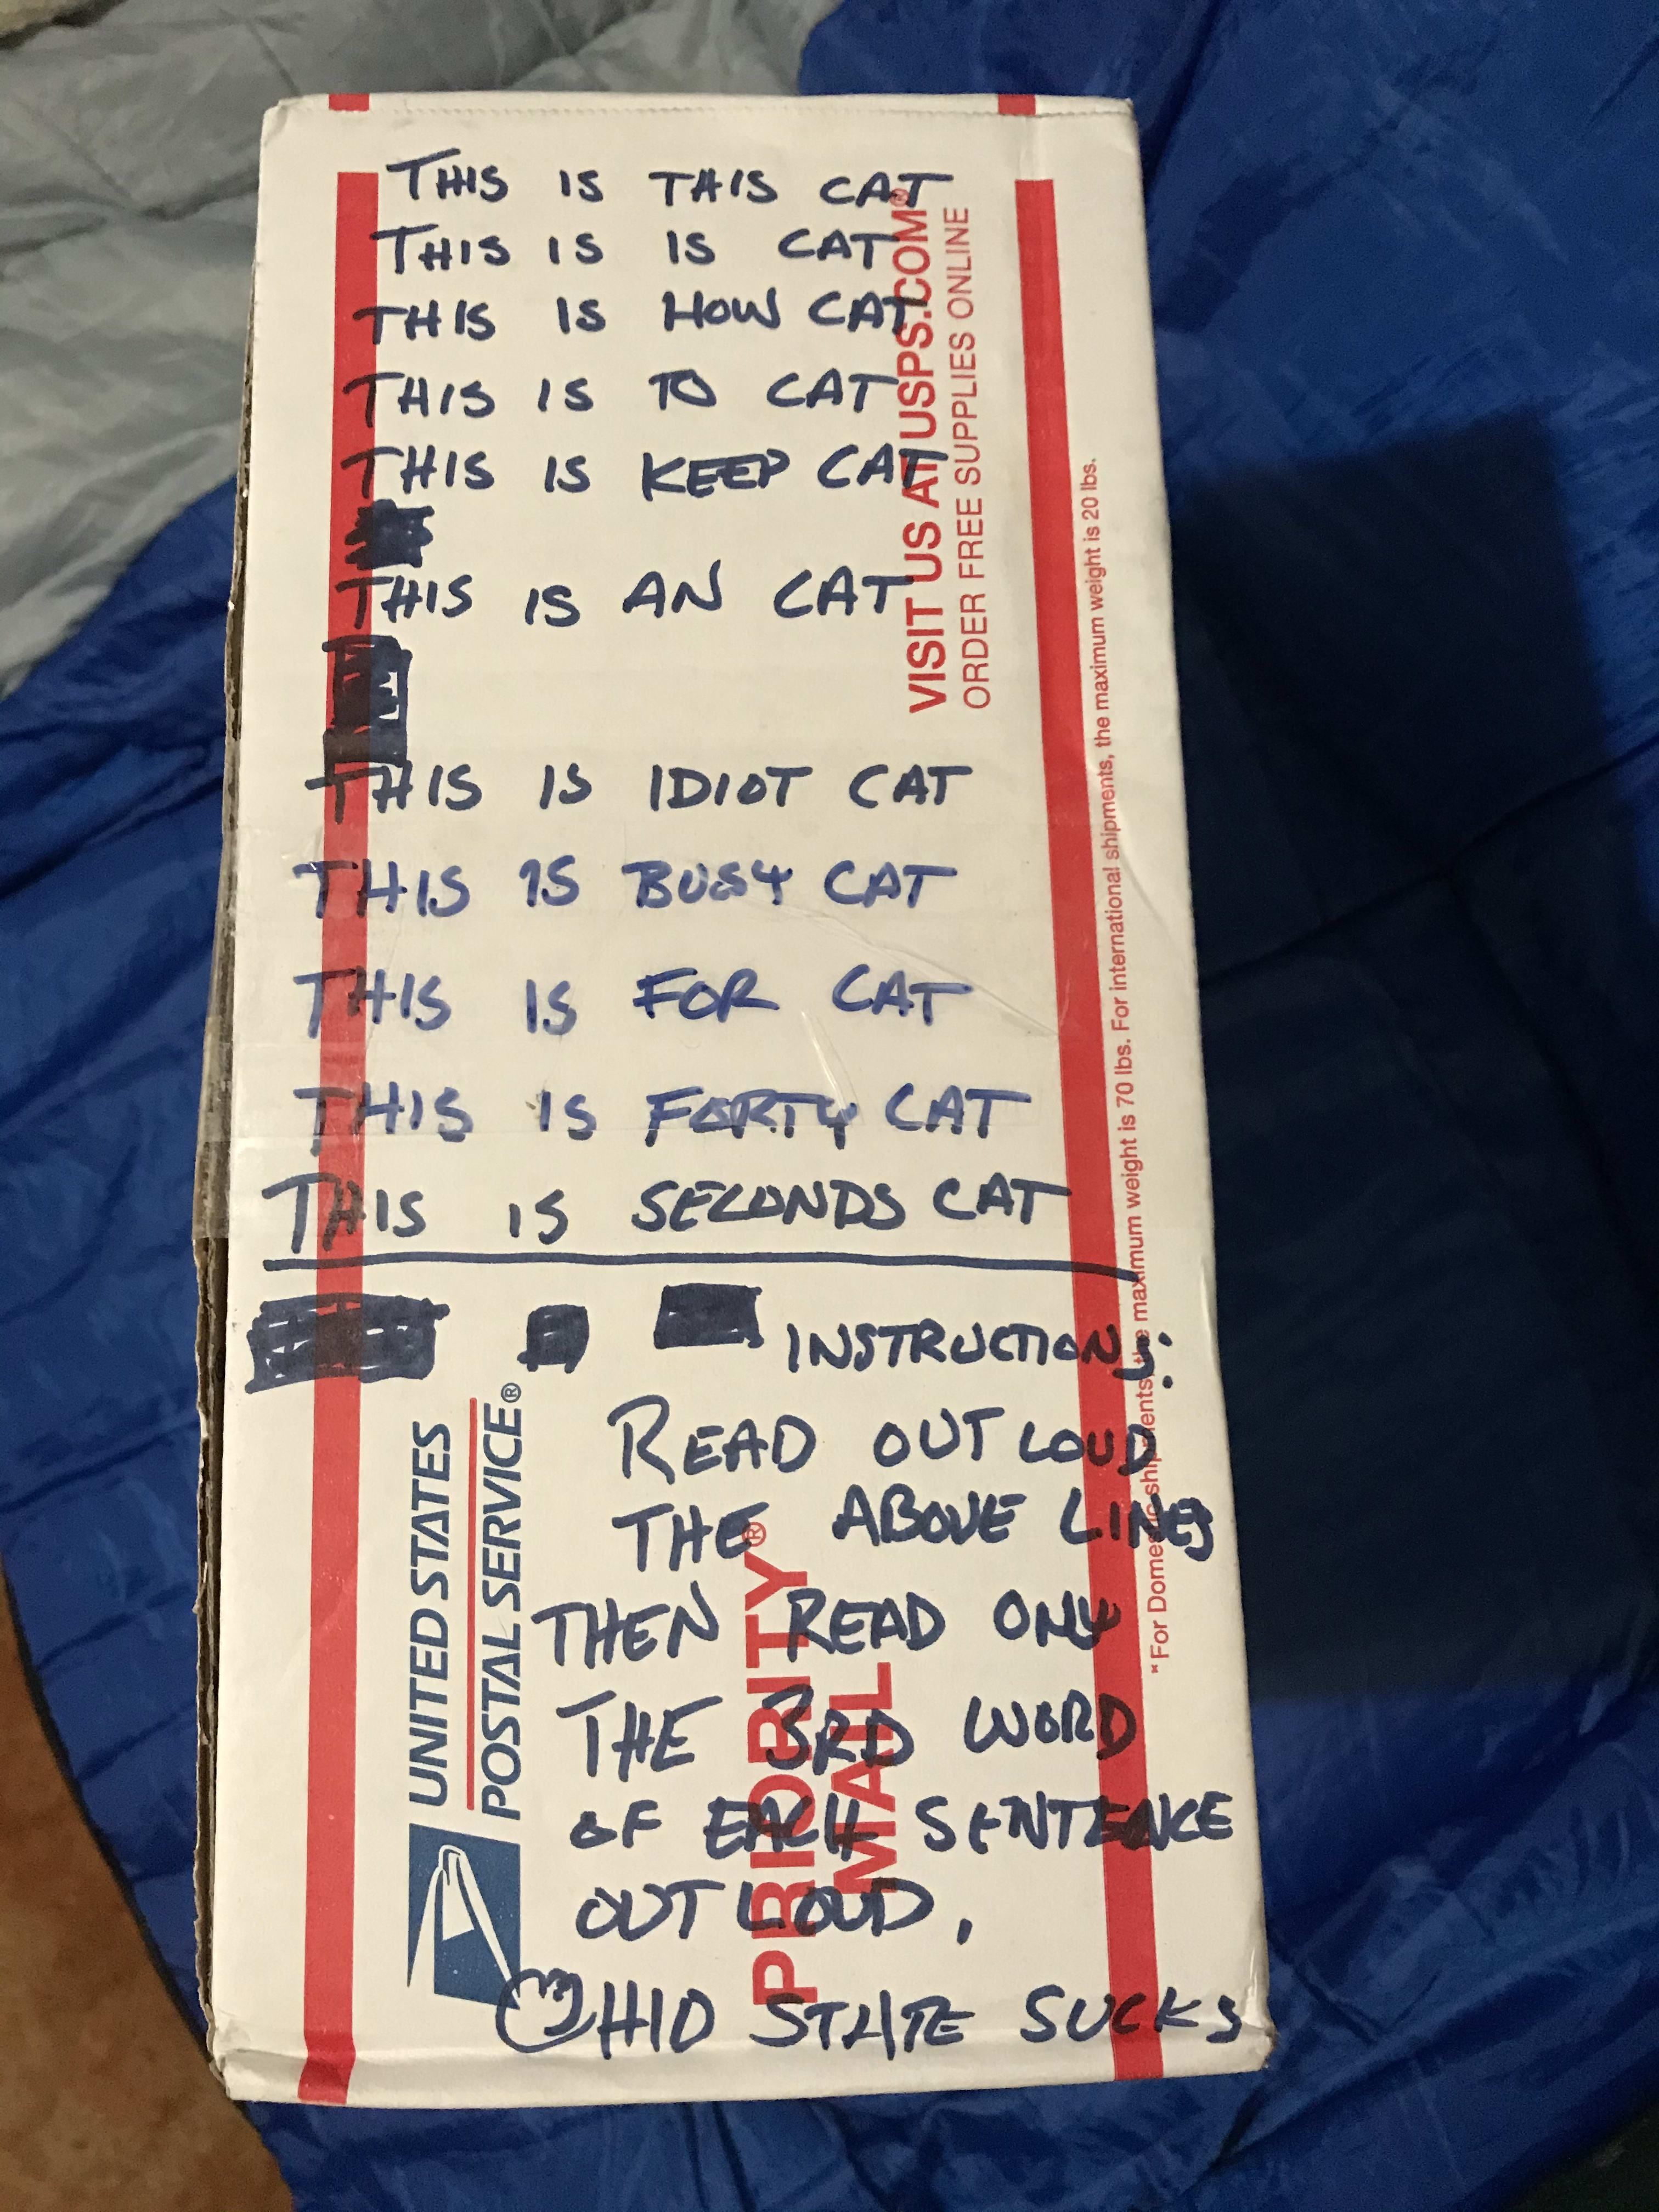 THIS IS THIS CAT
THIS IS IS CAT
THIS IS HOW CAT
THIS IS TO CAT
THIS IS KEEP CAT
THIS IS AN CAT
THIS IS IDIOT CAT
THIS IS BUSY CAT
THIS IS FOR CAT
THIS IS FORTY CAT
THIS IS SECONDS CAT
INSTRUCTIONS:
READ OUT LOUD
THE ABOVE LINES
THEN READ ONLY
THE 3RD WORD
OF EACH SENTENCE
OUT LOUD.
OHIO STATE SUCKS
VISIT US AT USPS.COM®
ORDER FREE SUPPLIES ONLINE
*For Domestic shipments, the maximum weight is 70 lbs. For international shipments, the maximum weight is 20 lbs.
UNITED STATES
POSTAL SERVICE®
PRIORITY®
MAIL